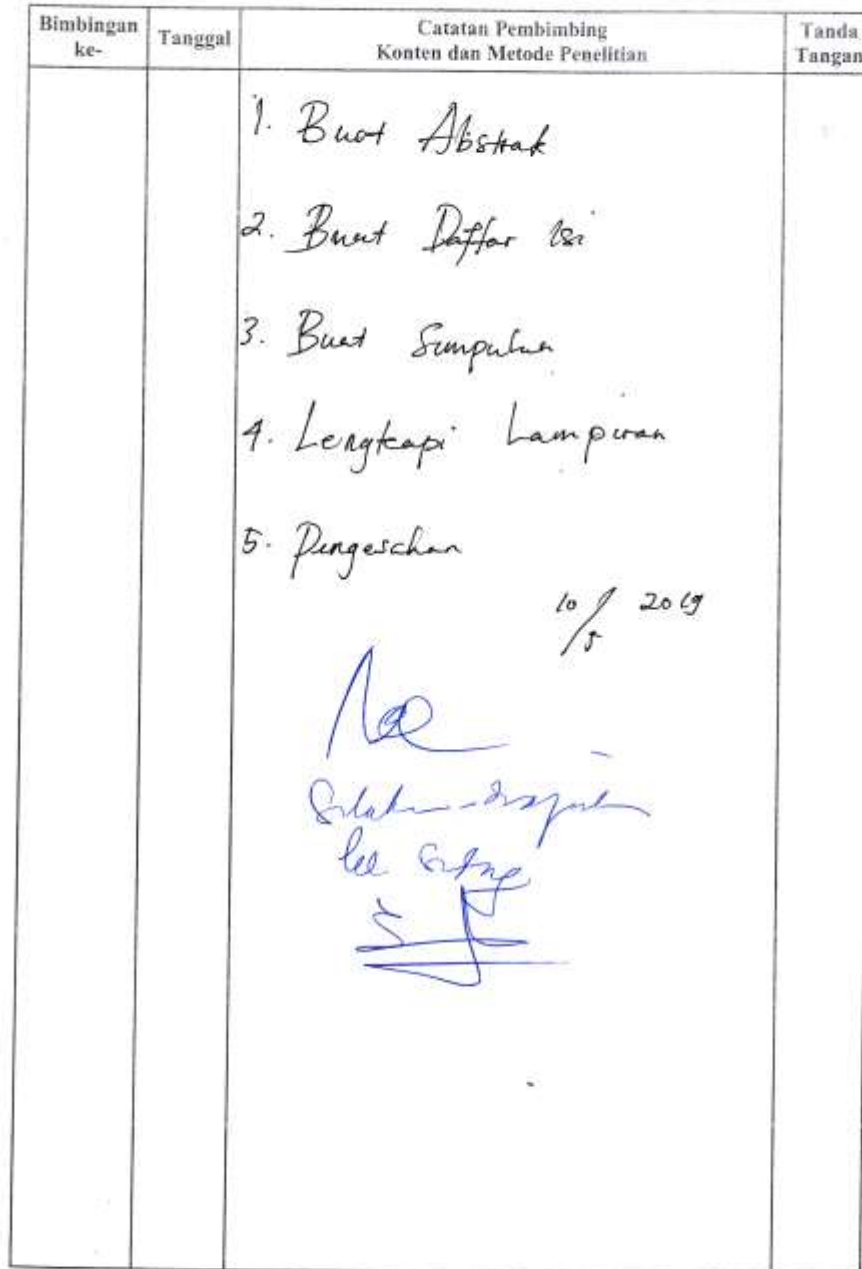 Bimbingan ke-
Tanggal
Catatan Pembimbing
Konten dan Metode Penelitian
Tanda Tangan
1. Buat Abstrak
2. Buat Daftar isi
3. Buat Simpulan
4. Lengkapi Lampiran
5. Pengesahan
10/5 2019